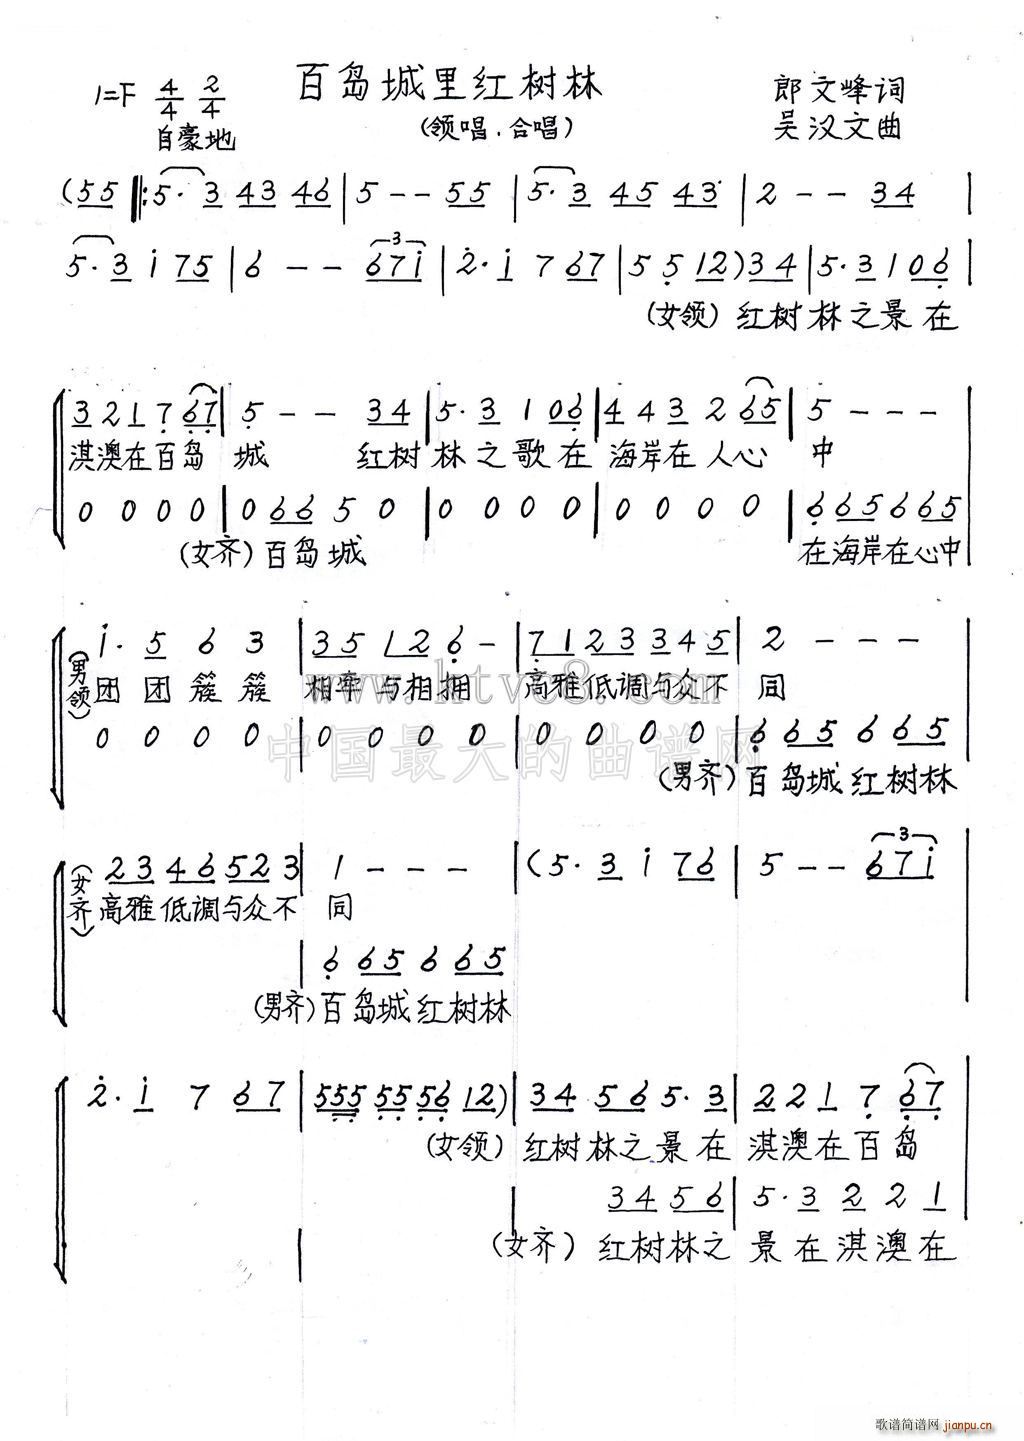 百岛城里红树林
郎文峰词
1=F 4/4 2/4
(领唱.合唱)
吴汉文曲
自豪地
(55 ‖:5·3 43 46 | 5 - - 55 | 5·3 45 43 | 2 - - 34 |
5·3 i 75 | 6 - - 67i | 2·i 7 67 | 55 12)34 | 5·3 1 06 |
(女领)红树林之景在
321767 | 5 - - 34 | 5·3 1 06 | 443 2 65 | 5 - - - |
淇澳在百岛 城 红树林之歌在 海岸在人心 中
0 0 0 0 | 0 66 5 0 | 0 0 0 0 | 0 0 0 0 | 6 65 6 65
(女齐)百岛城 在海岸在心中
i·5 6 3 | 35 12 6 - | 7123 345 | 2 - - -
(男领)团团簇簇 相牵与相拥 高雅低调与众不 同
www.ktvc8.com
0 0 0 0 | 0 0 0 0 | 0 0 0 0 | 6 65 6 65
中国最大的曲谱网
(男齐)百岛城红树林
23 46 52 3 | 1 - - - | (5·3 i 76 | 5 - - 67i
(女齐)高雅低调与众不 同
6 65 6 65
(男齐)百岛城红树林
2·i 7 67 | 555 55 56 12) | 34 56 5·3 | 221 7 67
(女领)红树林之景在 淇澳在百岛
34 56 | 5·3 2 2 1
(女齐)红树林之 景在淇澳在
歌谱简谱网 jianpu.cn